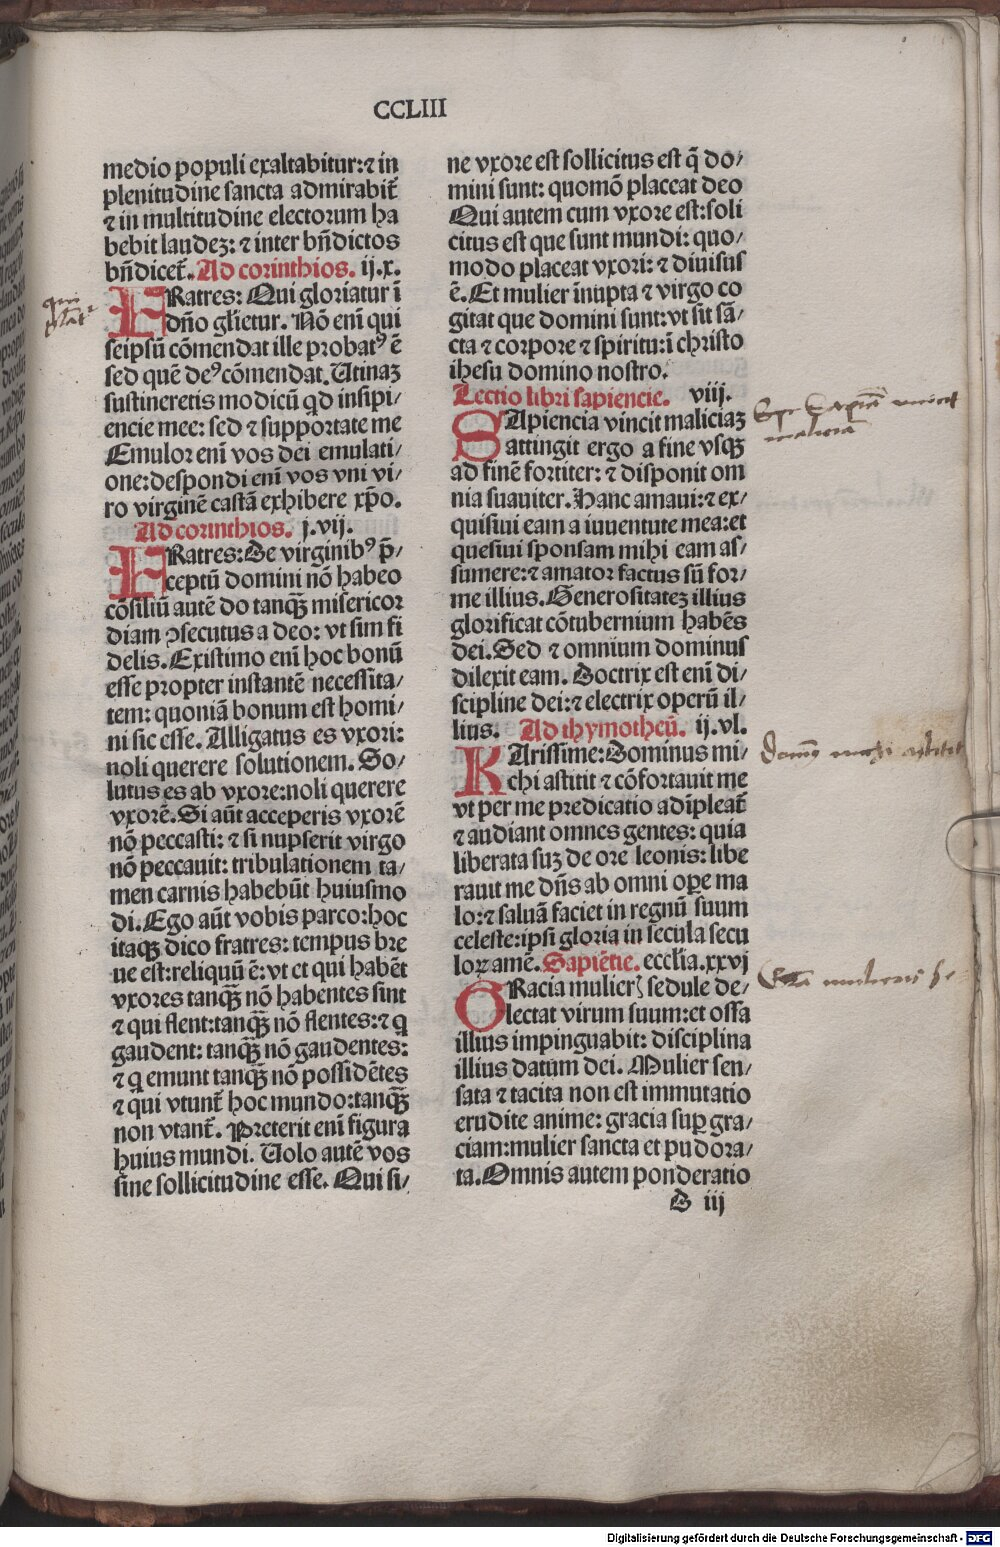 CCLIII
medio populi exaltabitur: ⁊ in
plenitudine sancta admirabit᷑
⁊ in multitudine electorum ha
bebit laudeꝫ: ⁊ inter bñdictos
bñdicet᷑. Ad corinthios. ij. x.
FRatres: Qui gloriatur ī
dño gl̄ietur. Nō eni̅ qui
seipsū cōmendat ille probatꝰ ē
sed quē deꝰ cōmendat. Utinaꝫ
sustineretis modicū qd insipi/
encie mee: sed ⁊ supportate me
Emulor enī vos dei emulati/
one: despondi enī vos vni vi/
ro virginē castā exhibere xp̄o.
Ad corinthios. j. vij.
FRatres: De virginibꝰ p̄/
ceptū domini nō habeo
cōsiliū autē do tanqꝫ misericor
diam ꝯsecutus a deo: vt sim fi
delis. Existimo enī hoc bonū
esse propter instantē necessita/
tem: quoniā bonum est homi/
ni sic esse. Alligatus es vxori:
noli querere solutionem. So/
lutus es ab vxore: noli querere
vxorē. Si aūt acceperis vxorē
nō peccasti: ⁊ si nupserit virgo
nō peccauit: tribulationem ta/
men carnis habebūt huiusmo
di. Ego aūt vobis parco: hoc
itaqꝫ dico fratres: tempus bre
ue est: reliquū ē: vt et qui habēt
vxores tanqꝫ nō habentes sint
⁊ qui flent: tanqꝫ nō flentes: ⁊ q
gaudent: tanqꝫ nō gaudentes:
⁊ q emunt tanqꝫ nō possidētes
⁊ qui vtunt᷑ hoc mundo: tanqꝫ
non vtant᷑. Preterit enī figura
huius mundi. Uolo autē vos
sine sollicitudine esse. Qui si/
ne vxore est sollicitus est q̄ do/
mini sunt: quomō placeat deo
Qui autem cum vxore est: soli
citus est que sunt mundi: quo/
modo placeat vxori: ⁊ diuisus
ē. Et mulier īnupta ⁊ virgo co
gitat que domini sunt: vt sit sā/
cta ⁊ corpore ⁊ spiritu: ī christo
ihesu domino nostro.
Lectio libri sapiencie. viij.
SApiencia vincit maliciaꝫ
attingit ergo a fine vsqꝫ
ad finē fortiter: ⁊ disponit om
nia suauiter. Hanc amaui: ⁊ ex/
quisiui eam a iuuentute mea: et
quesiui sponsam mihi eam as/
sumere: ⁊ amator factus sū for/
me illius. Generositateꝫ illius
glorificat cōtubernium habēs
dei. Sed ⁊ omnium dominus
dilexit eam. Doctrix est enī di/
scipline dei: ⁊ electrix operū il/
lius. Ad thymotheū. ij. vl.
KArissime: Dominus mi/
chi astitit ⁊ cōfortauit me
vt per me predicatio adīpleat᷑
⁊ audiant omnes gentes: quia
liberata suꝫ de ore leonis: libe
rauit me dn̄s ab omni oꝑe ma
lo: ⁊ saluā faciet in regnū suum
celeste: ipsi gloria in secula secu
loꝝ amē. Sapiētie. eccl̄ia. xxvj
GRacia mulier̄ sedule de/
lectat virum suum: et ossa
illius impinguabit: disciplina
illius datum dei. Mulier sen/
sata ⁊ tacita non est immutatio
erudite anime: gracia suꝑ gra/
ciam: mulier sancta et pudora/
ta. Omnis autem ponderatio
G iij
malicia
Digitalisierung gefördert durch die Deutsche Forschungsgemeinschaft - DFG